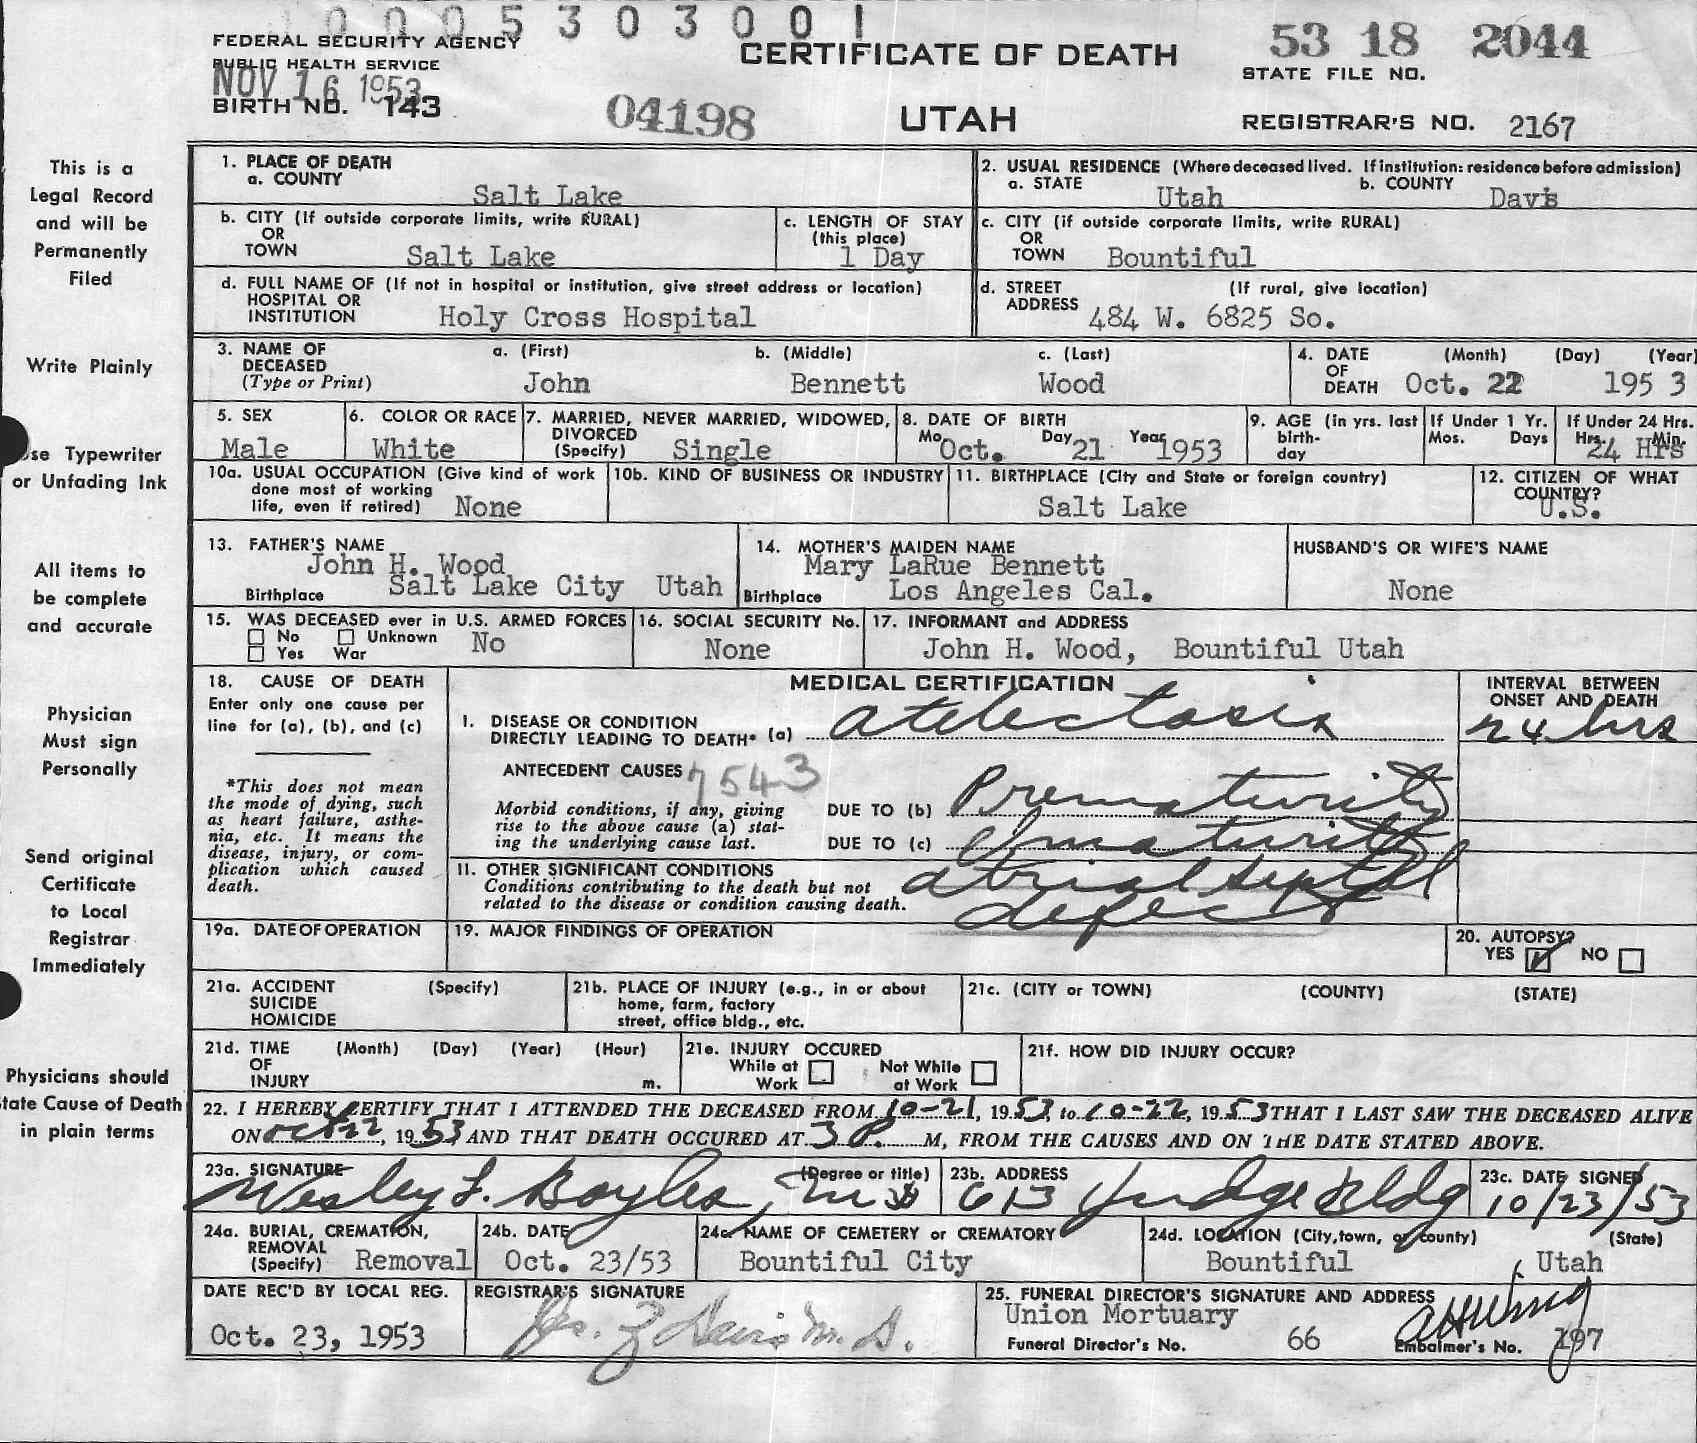 1 0 0 0 5 3 0 3 0 0 1
FEDERAL SECURITY AGENCY
PUBLIC HEALTH SERVICE
NOV 16 1953
BIRTH NO. 143
04198
CERTIFICATE OF DEATH
UTAH
53 18 2044
STATE FILE NO.
REGISTRAR'S NO. 2167
This is a
Legal Record
and will be
Permanently
Filed
Write Plainly
Use Typewriter
or Unfading Ink
All items to
be complete
and accurate
Physician
Must sign
Personally
Send original
Certificate
to Local
Registrar
Immediately
Physicians should
State Cause of Death
in plain terms
1. PLACE OF DEATH
a. COUNTY
Salt Lake
2. USUAL RESIDENCE (Where deceased lived. If institution: residence before admission)
a. STATE Utah b. COUNTY Davis
b. CITY (If outside corporate limits, write RURAL)
OR
TOWN Salt Lake
c. LENGTH OF STAY
(this place)
1 Day
c. CITY (if outside corporate limits, write RURAL)
OR
TOWN Bountiful
d. FULL NAME OF (If not in hospital or institution, give street address or location)
HOSPITAL OR
INSTITUTION Holy Cross Hospital
d. STREET (If rural, give location)
ADDRESS 484 W. 6825 So.
3. NAME OF a. (First) b. (Middle) c. (Last)
DECEASED
(Type or Print) John Bennett Wood
4. DATE (Month) (Day) (Year)
OF
DEATH Oct. 22 195 3
5. SEX
Male
6. COLOR OR RACE
White
7. MARRIED, NEVER MARRIED, WIDOWED,
DIVORCED
(Specify) Single
8. DATE OF BIRTH
Mo. Day Year
Oct. 21 1953
9. AGE (in yrs. last
birth-
day
If Under 1 Yr.
Mos. Days
If Under 24 Hrs.
Hrs. Min.
24 Hrs
10a. USUAL OCCUPATION (Give kind of work
done most of working
life, even if retired) None
10b. KIND OF BUSINESS OR INDUSTRY
11. BIRTHPLACE (City and State or foreign country)
Salt Lake
12. CITIZEN OF WHAT
COUNTRY?
U.S.
13. FATHER'S NAME
John H. Wood
Birthplace Salt Lake City Utah
14. MOTHER'S MAIDEN NAME
Mary LaRue Bennett
Birthplace Los Angeles Cal.
HUSBAND'S OR WIFE'S NAME
None
15. WAS DECEASED ever in U.S. ARMED FORCES
No Unknown No
Yes War
16. SOCIAL SECURITY No.
None
17. INFORMANT and ADDRESS
John H. Wood, Bountiful Utah
18. CAUSE OF DEATH
Enter only one cause per
line for (a), (b), and (c)
*This does not mean
the mode of dying, such
as heart failure, asthe-
nia, etc. It means the
disease, injury, or com-
plication which caused
death.
MEDICAL CERTIFICATION
INTERVAL BETWEEN
ONSET AND DEATH
I. DISEASE OR CONDITION
DIRECTLY LEADING TO DEATH* (a) Atelectasis 24 hrs
ANTECEDENT CAUSES 7543
Morbid conditions, if any, giving
rise to the above cause (a) stat-
ing the underlying cause last.
DUE TO (b) Prematurity
DUE TO (c) Imaturity
11. OTHER SIGNIFICANT CONDITIONS
Conditions contributing to the death but not
related to the disease or condition causing death.
atrial septal
defect
19a. DATE OF OPERATION
19. MAJOR FINDINGS OF OPERATION
20. AUTOPSY?
YES NO
21a. ACCIDENT (Specify)
SUICIDE
HOMICIDE
21b. PLACE OF INJURY (e.g., in or about
home, farm, factory
street, office bldg., etc.
21c. (CITY or TOWN) (COUNTY) (STATE)
21d. TIME (Month) (Day) (Year) (Hour)
OF
INJURY m.
21e. INJURY OCCURED
While at Not While
Work at Work
21f. HOW DID INJURY OCCUR?
22. I HEREBY CERTIFY THAT I ATTENDED THE DECEASED FROM 10-21, 1953, to 10-22, 1953 THAT I LAST SAW THE DECEASED ALIVE
ON Oct 22, 1953 AND THAT DEATH OCCURED AT 3 P. M, FROM THE CAUSES AND ON THE DATE STATED ABOVE.
23a. SIGNATURE (Degree or title)
Wesley F. Bayles, MD
23b. ADDRESS
613 Judge Bldg
23c. DATE SIGNED
10/23/53
24a. BURIAL, CREMATION,
REMOVAL
(Specify) Removal
24b. DATE
Oct. 23/53
24c. NAME OF CEMETERY or CREMATORY
Bountiful City
24d. LOCATION (City, town, or county) (State)
Bountiful Utah
DATE REC'D BY LOCAL REG.
Oct. 23, 1953
REGISTRAR'S SIGNATURE
Davis M. D.
25. FUNERAL DIRECTOR'S SIGNATURE AND ADDRESS
Union Mortuary
Funeral Director's No. 66 Embalmer's No. 197